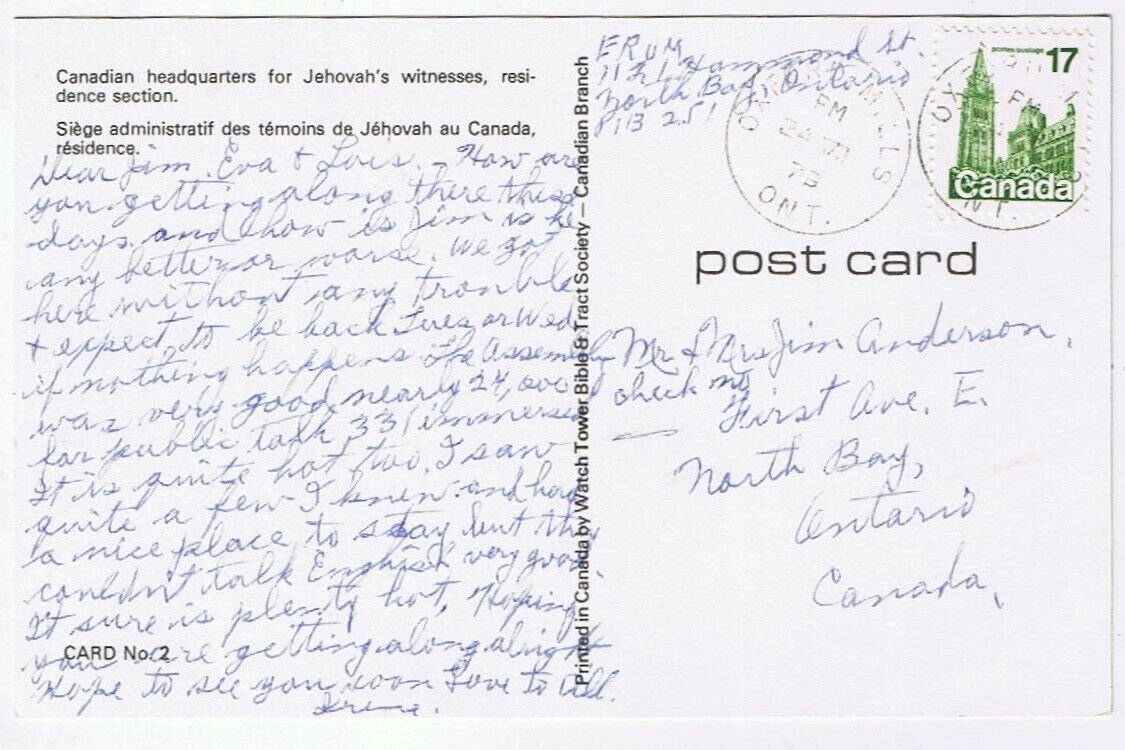 Canadian headquarters for Jehovah's witnesses, resi-
dence section.
Siège administratif des témoins de Jéhovah au Canada,
résidence.
Dear Jim, Eva & Lois. - How are
you getting along there these
days and how is Jim is he
any better or worse. We got
here without any trouble
& expect to be back Tues. or Wed.
if nothing happens. The Assembly
was very good nearly 24,000
for public talk, 331 immersed
It is quite hot too. I saw
quite a few I knew and had
a nice place to stay but they
couldn't talk English very good.
It sure is plenty hot, Hoping
you are getting along alright
Hope to see you soon Love to all.
Irene.
CARD No. 2
Printed in Canada by Watch Tower Bible & Tract Society — Canadian Branch
FROM
1121 Hammond St.
North Bay, Ontario
P1B 2S1
PM
24 VII
ONT.
PM
ONT.
postes-postage 17
Canada
post card
Mr & Mrs Jim Anderson,
check no
First Ave, E.
North Bay,
Ontario
Canada,